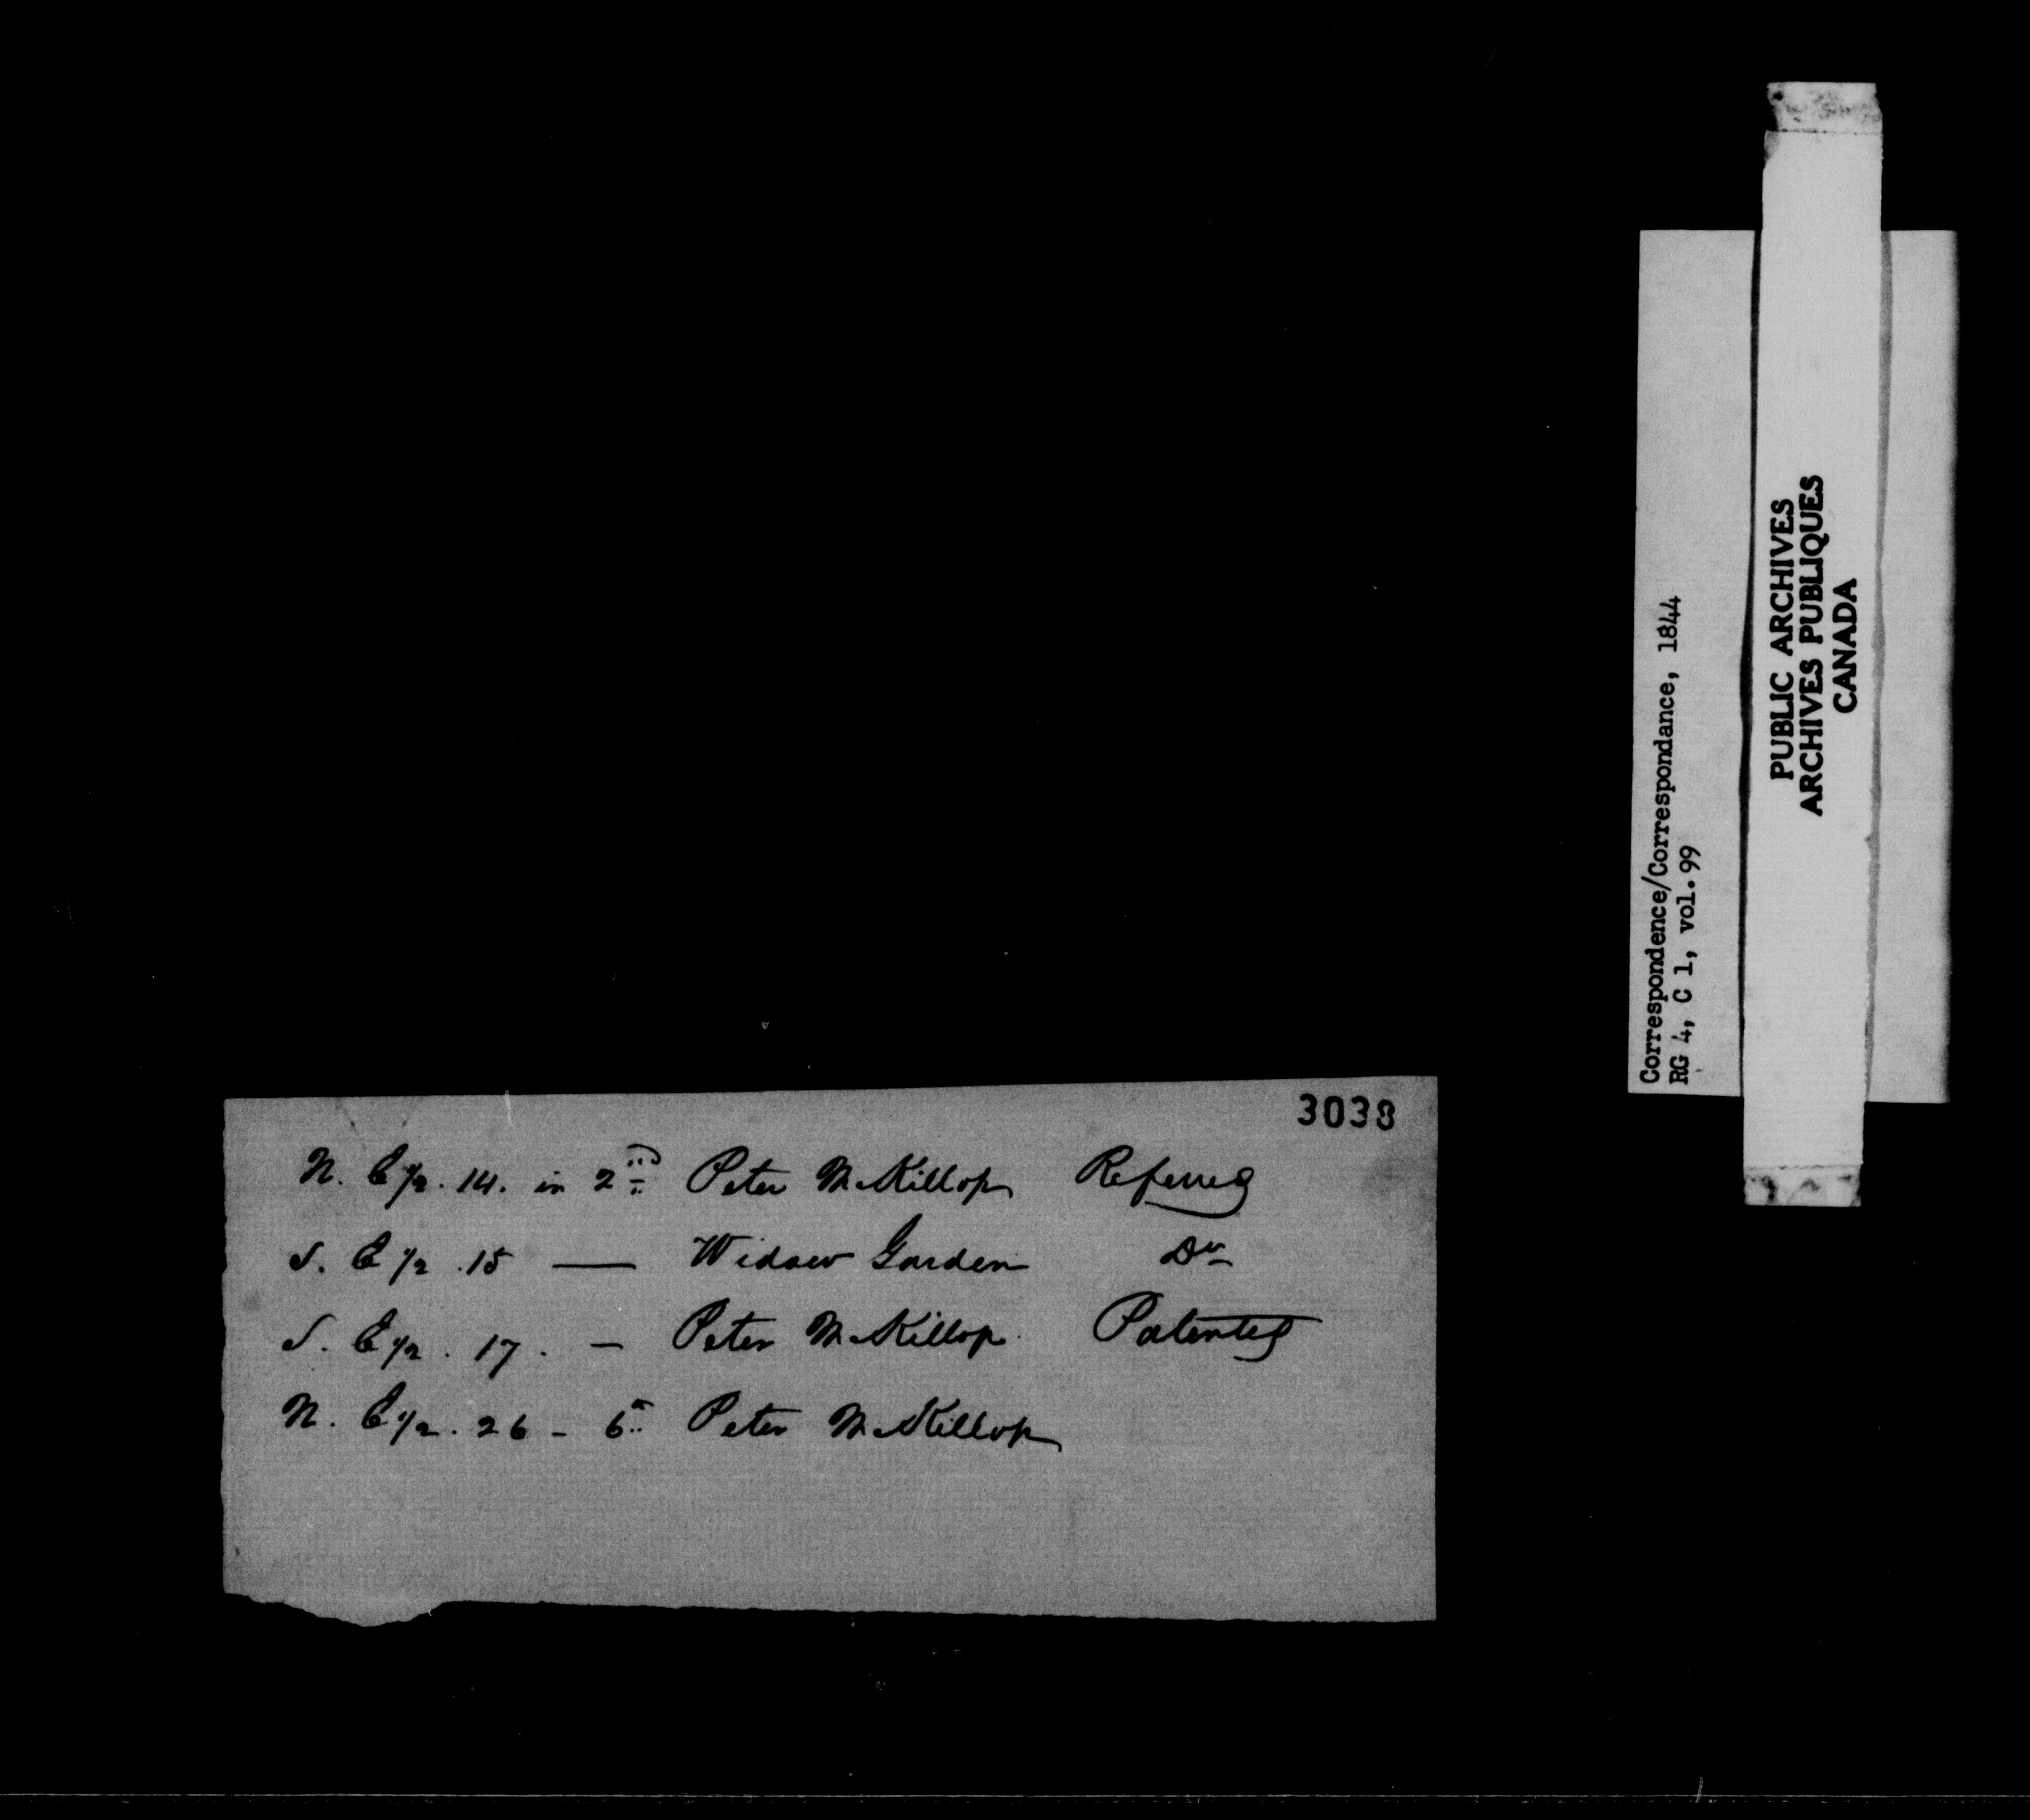 3038
N. E 1/2. 14. in 2nd Peter McKillop Referred
S. E 1/2 .15 — Widow Garden Do
S. E 1/2 . 17. — Peter McKillop. Patented
N. E 1/2. 26 - 6th Peter McKillop
Correspondence/Correspondance, 1844
RG 4, C 1, vol.99
PUBLIC ARCHIVES
ARCHIVES PUBLIQUES
CANADA